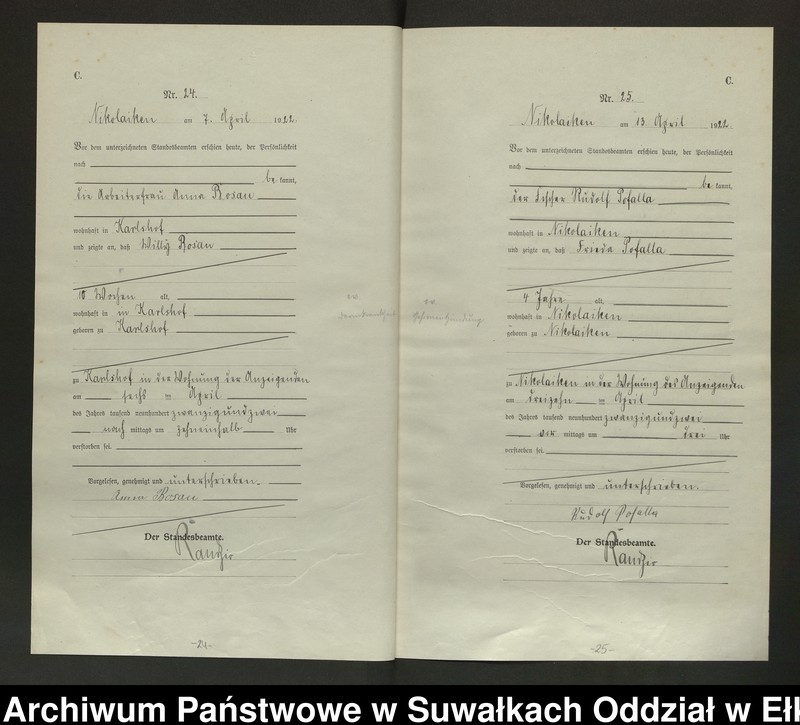 C.
Nr. 24.
Nikolaiken am 7. April 1922.
Vor dem unterzeichneten Standesbeamten erschien heute, der Persönlichkeit
nach
be kannt,
die Arbeiterfrau Anna Rosau
wohnhaft in Karlshof
und zeigte an, daß Willy Rosau
10 Wochen alt,
wohnhaft in in Karlshof
geboren zu Karlshof
zu Karlshof in der Wohnung der Anzeigenden
am sechs ten April
des Jahres tausend neunhundert zwanzigundzwei
nach mittags um zehneinhalb Uhr
verstorben sei.
Vorgelesen, genehmigt und unterschrieben.
Anna Rosau
Der Standesbeamte.
-24-
C.
Nr. 25.
Nikolaiken am 13. April 1922.
Vor dem unterzeichneten Standesbeamten erschien heute, der Persönlichkeit
nach
be kannt,
der Fischer Rudolf Pofalla
wohnhaft in Nikolaiken
und zeigte an, daß Frieda Pofalla
4 Jahre alt,
wohnhaft in Nikolaiken
geboren zu Nikolaiken
zu Nikolaiken in der Wohnung des Anzeigenden
am dreizehn ten April
des Jahres tausend neunhundert zwanzigundzwei
vor mittags um drei Uhr
verstorben sei.
Vorgelesen, genehmigt und unterschrieben.
Rudolf Pofalla
Der Standesbeamte.
-25-
Archiwum Państwowe w Suwałkach Oddział w Eł